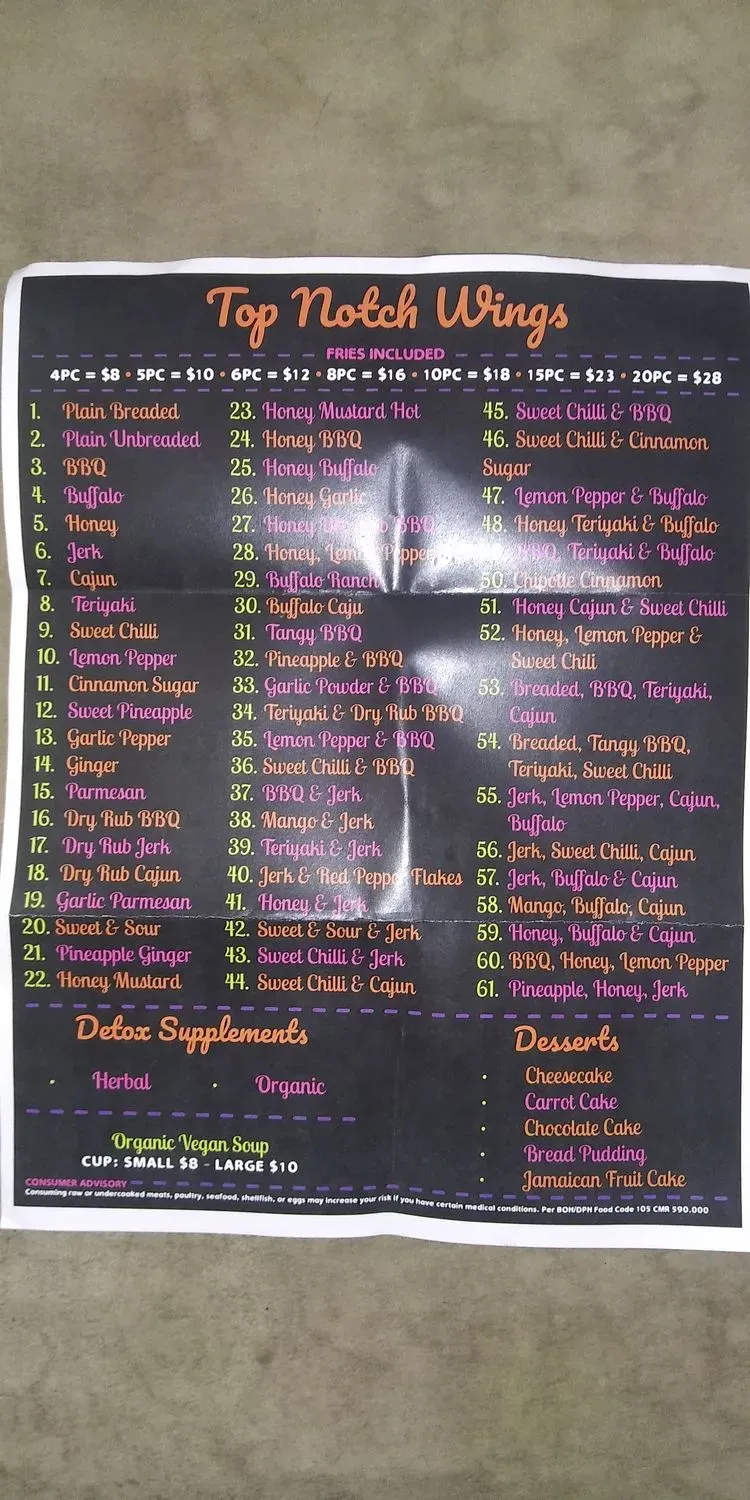 Top Notch Wings
FRIES INCLUDED
4PC = $8 • 5PC = $10 • 6PC = $12 • 8PC = $16 • 10PC = $18 • 15PC = $23 • 20PC = $28
1. Plain Breaded
2. Plain Unbreaded
3. BBQ
4. Buffalo
5. Honey
6. Jerk
7. Cajun
8. Teriyaki
9. Sweet Chilli
10. Lemon Pepper
11. Cinnamon Sugar
12. Sweet Pineapple
13. Garlic Pepper
14. Ginger
15. Parmesan
16. Dry Rub BBQ
17. Dry Rub Jerk
18. Dry Rub Cajun
19. Garlic Parmesan
20. Sweet & Sour
21. Pineapple Ginger
22. Honey Mustard
23. Honey Mustard Hot
24. Honey BBQ
25. Honey Buffalo
26. Honey Garlic
27. Honey Dry Rub BBQ
28. Honey, Lemon Pepper
29. Buffalo Ranch
30. Buffalo Caju
31. Tangy BBQ
32. Pineapple & BBQ
33. Garlic Powder & BBQ
34. Teriyaki & Dry Rub BBQ
35. Lemon Pepper & BBQ
36. Sweet Chilli & BBQ
37. BBQ & Jerk
38. Mango & Jerk
39. Teriyaki & Jerk
40. Jerk & Red Pepper Flakes
41. Honey & Jerk
42. Sweet & Sour & Jerk
43. Sweet Chilli & Jerk
44. Sweet Chilli & Cajun
45. Sweet Chilli & BBQ
46. Sweet Chilli & Cinnamon
Sugar
47. Lemon Pepper & Buffalo
48. Honey Teriyaki & Buffalo
BBQ, Teriyaki & Buffalo
50. Chipotle Cinnamon
51. Honey Cajun & Sweet Chilli
52. Honey, Lemon Pepper &
Sweet Chili
53. Breaded, BBQ, Teriyaki,
Cajun
54. Breaded, Tangy BBQ,
Teriyaki, Sweet Chilli
55. Jerk, Lemon Pepper, Cajun,
Buffalo
56. Jerk, Sweet Chilli, Cajun
57. Jerk, Buffalo & Cajun
58. Mango, Buffalo, Cajun
59. Honey, Buffalo & Cajun
60. BBQ, Honey, Lemon Pepper
61. Pineapple, Honey, Jerk
Detox Supplements
• Herbal • Organic
Organic Vegan Soup
CUP: SMALL $8 - LARGE $10
Desserts
• Cheesecake
• Carrot Cake
• Chocolate Cake
• Bread Pudding
• Jamaican Fruit Cake
CONSUMER ADVISORY
Consuming raw or undercooked meats, poultry, seafood, shellfish, or eggs may increase your risk if you have certain medical conditions. Per BOH/DPH Food Code 105 CMR 590.000